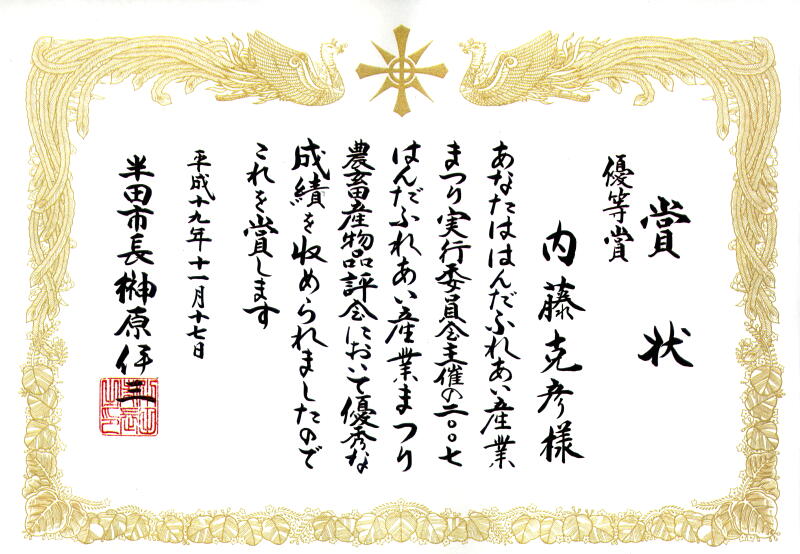 賞状
優等賞
内藤克彦様
あなたははんだふれあい産業
まつり実行委員会主催の二〇〇七
はんだふれあい産業まつり
農畜産物品評会において優秀な
成績を収められましたので
これを賞します
平成十九年十一月十七日
半田市長榊原伊三